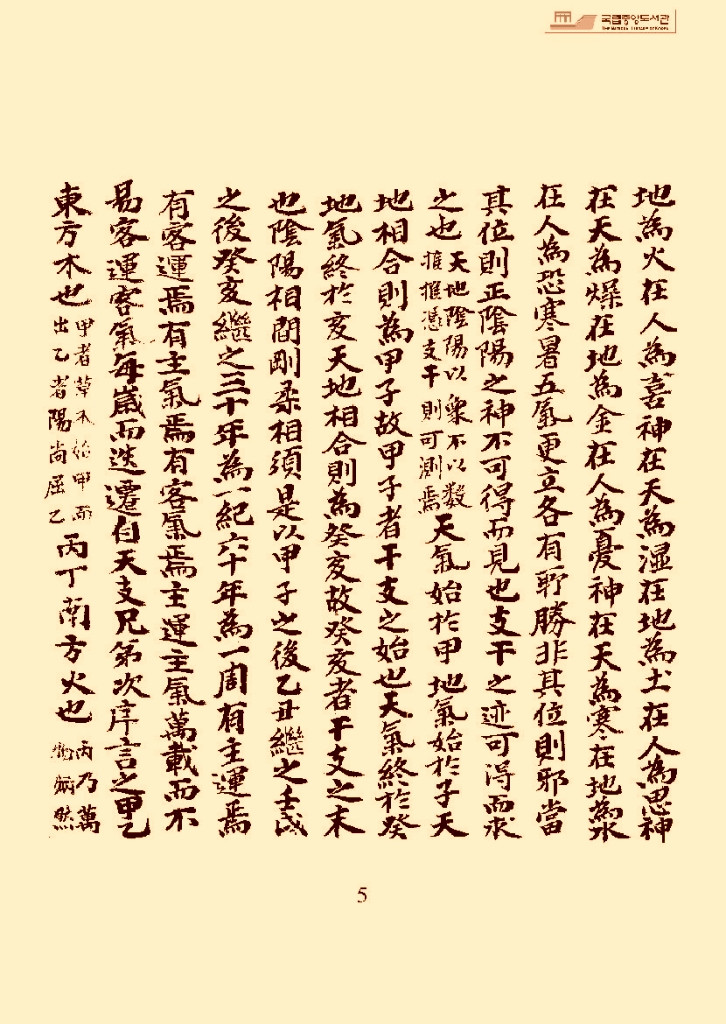 국립중앙도서관
THE NATIONAL LIBRARY OF KOREA
地為火在人為喜神在天為湿在地為土在人為思神
在天為燥在地為金在人為憂神在天為寒在地為水
在人為恐寒暑五氣更立各有所勝非其位則邪當
其位則正陰陽之神不可得而見也支干之迹可得而求
之也天地陰陽以象不以數推憑支干則可測焉天氣始於甲地氣始於子天
地相合則為甲子故甲子者干支之始也天氣終於癸
地氣終於亥天地相合則為癸亥故癸亥者干支之末
也陰陽相間剛柔相須是以甲子之後乙丑繼之壬戌
之後癸亥繼之三十年為一紀六十年為一周有主運焉
有客運焉有主氣焉有客氣焉主運主氣萬載而不
易客運客氣每歲而迭遷自天支兄第次序言之甲乙
東方木也甲者草木始甲而出乙者陽尚屈乙丙丁南方火也丙乃萬物炳然
5